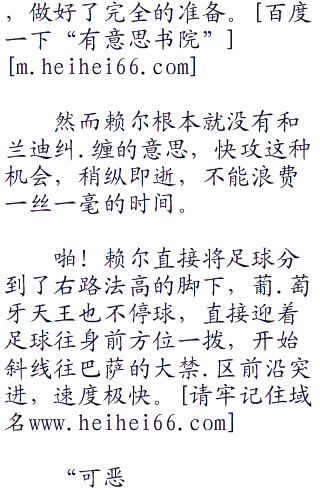 ，做好了完全的准备。[百度
一下“有意思书院”]
[m.heihei66.com]
然而赖尔根本就没有和
兰迪纠.缠的意思，快攻这种
机会，稍纵即逝，不能浪费
一丝一毫的时间。
啪！赖尔直接将足球分
到了右路法高的脚下，葡.萄
牙天王也不停球，直接迎着
足球往身前方位一拨，开始
斜线往巴萨的大禁.区前沿突
进，速度极快。[请牢记住域
名www.heihei66.com]
“可恶